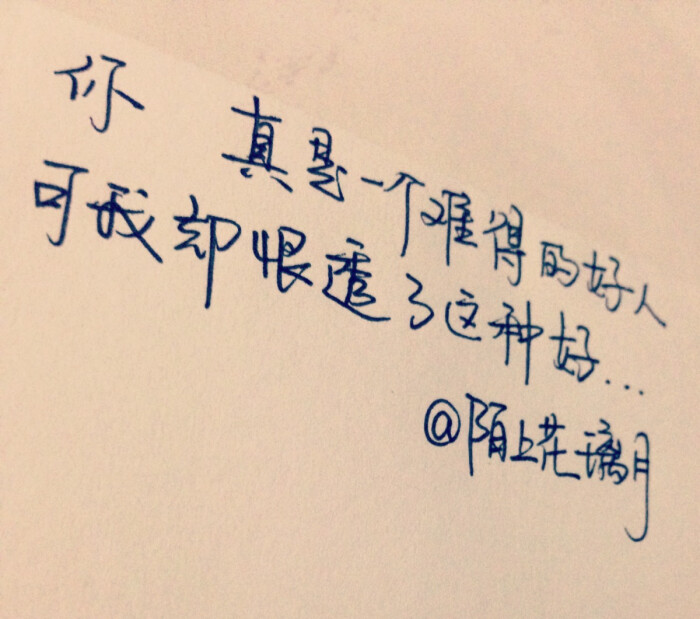 你 真是一个难得的好人
可我却恨透了这种好...
@陌上花璃月